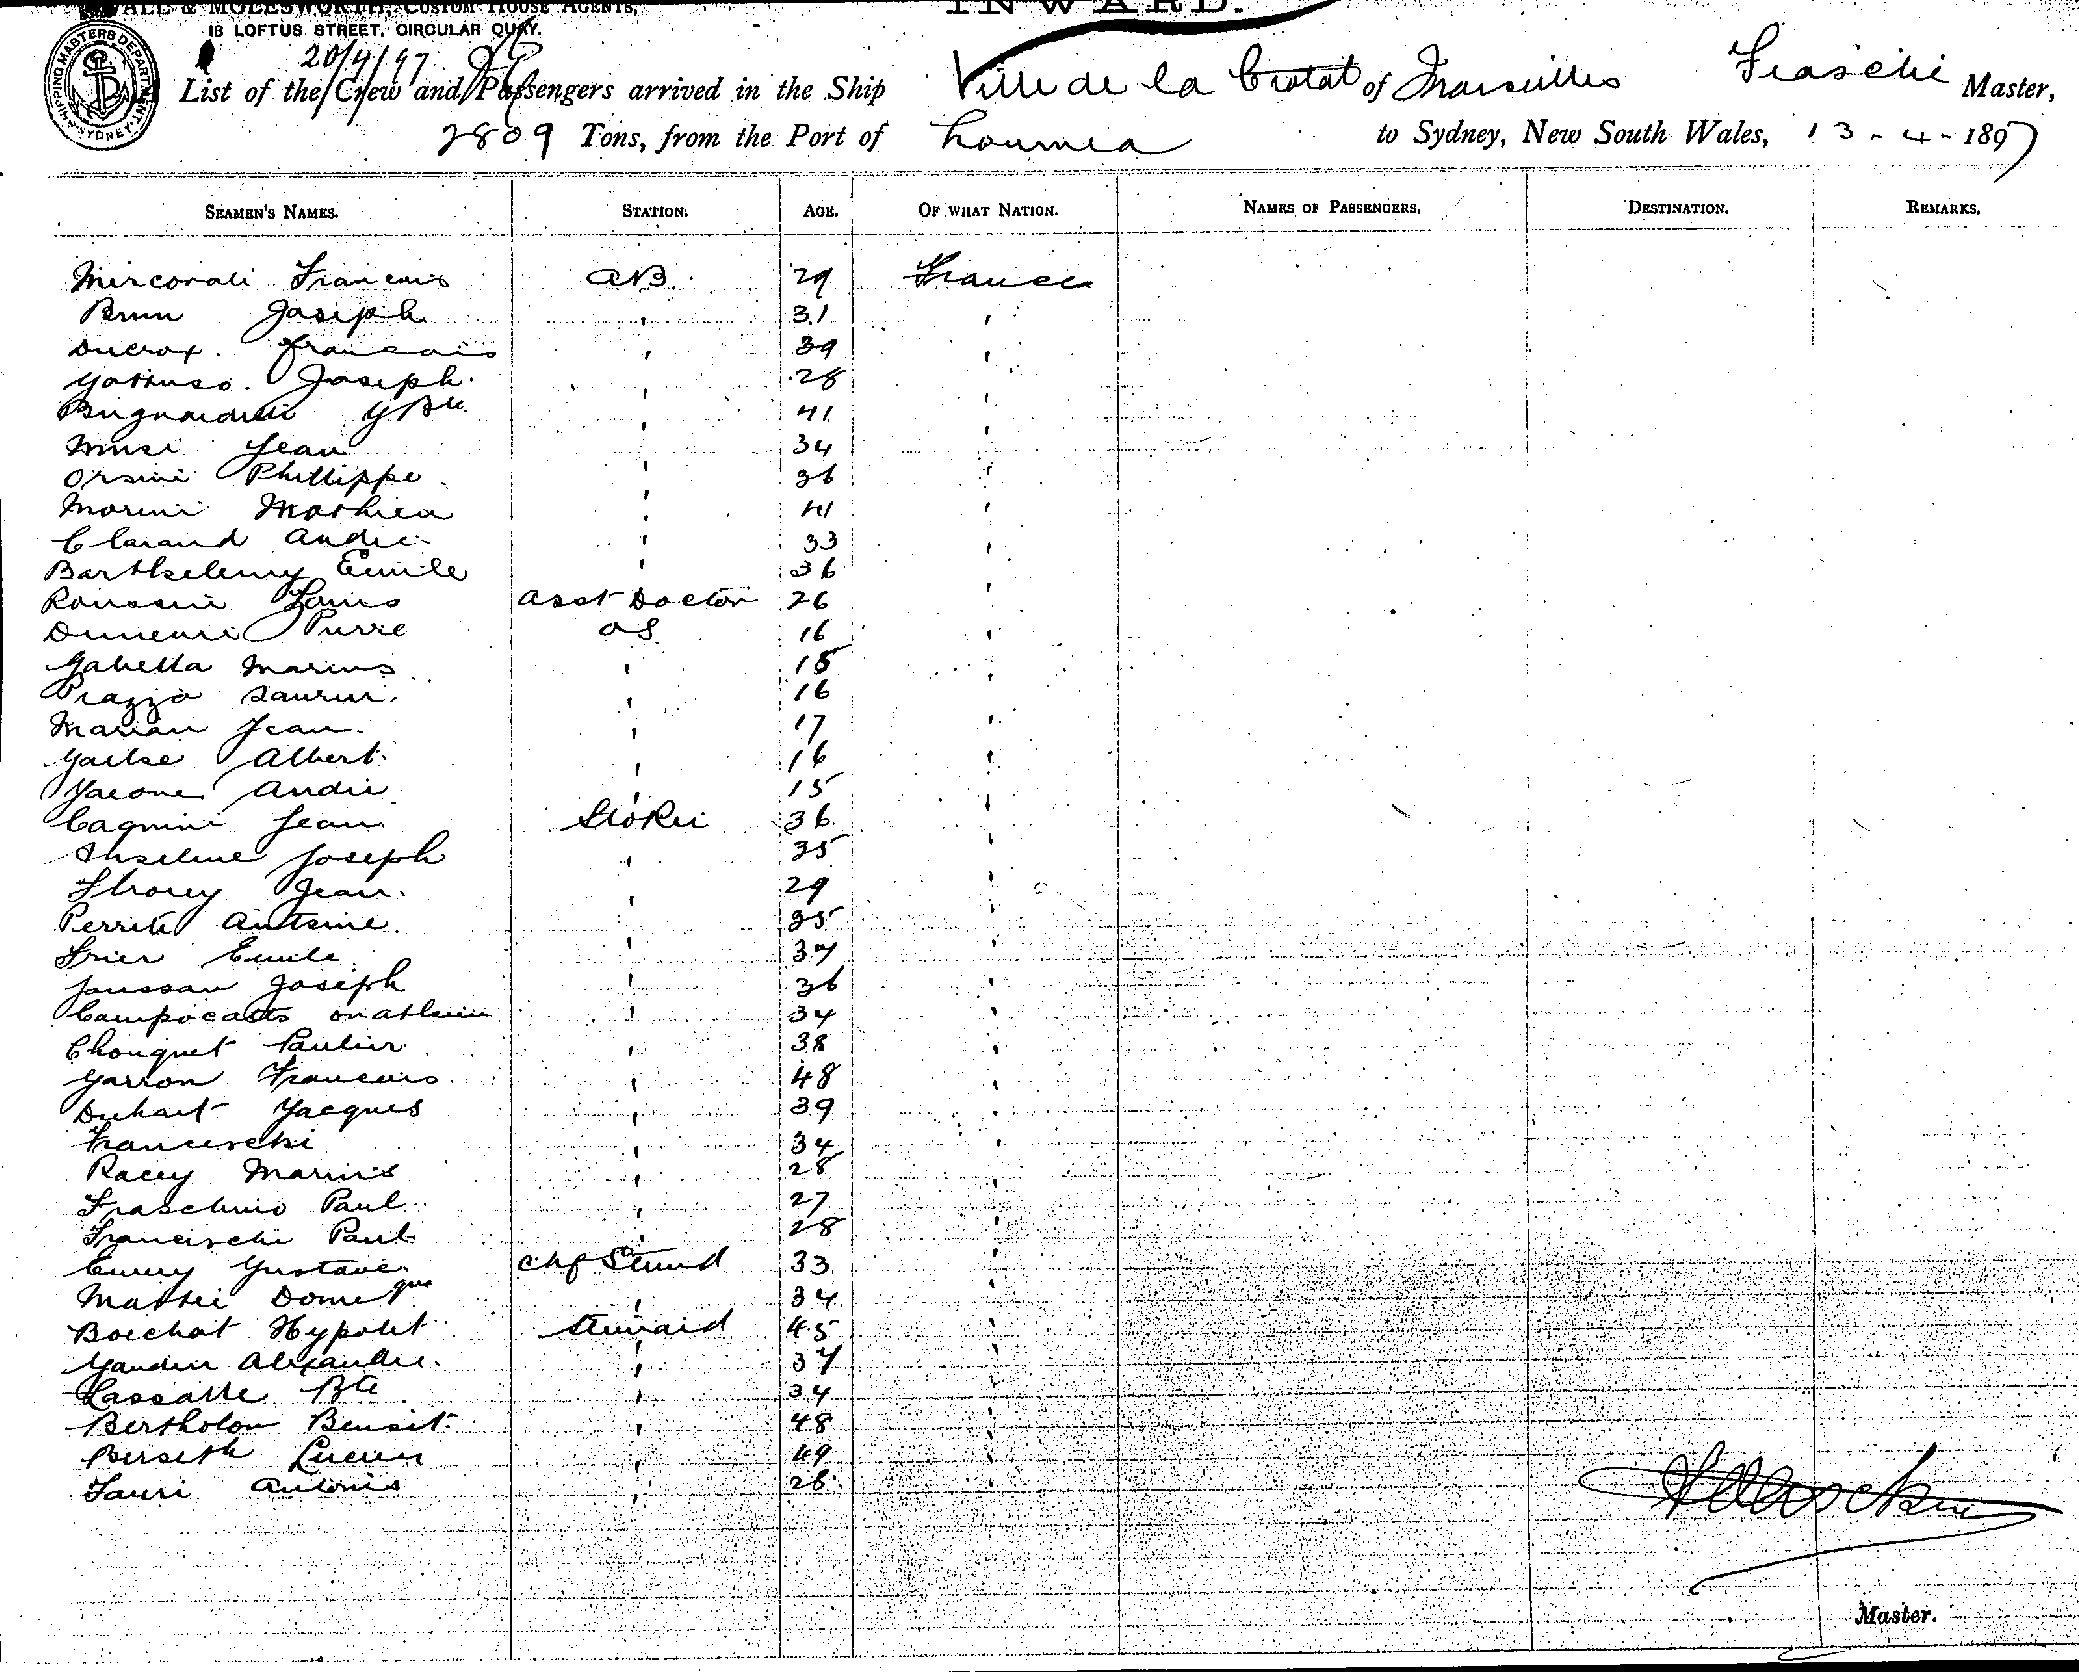 INWARD.
& MOLESWORTH, CUSTOM HOUSE AGENTS,
18 LOFTUS STREET, CIRCULAR QUAY.
SHIPPING MASTERS DEPARTMENT SYDNEY
20/4/97
List of the Crew and Passengers arrived in the Ship Ville de la Ciotat of Marseilles Fiaschi Master,
2809 Tons, from the Port of Noumea to Sydney, New South Wales, 13-4-1897
SEAMEN'S NAMES. STATION. AGE. OF WHAT NATION. NAMES OF PASSENGERS. DESTINATION. REMARKS.
Francois AB 29 France
Brun Joseph " 31 "
Ducrox. Francois " 39 "
Joseph. " 28 "
" 41 "
Jean " 34 "
Orsini Phillippe " 36 "
Marini Mathieu " 41 "
Claraud Andre " 33 "
Barthelemy Emile " 36 "
Louis Asst Doctor 26 "
Pierre OS 16 "
Gabella Marius " 15 "
Piazza " 16 "
Marian Jean " 17 "
Albert " 16 "
Andre " 15 "
Cagnini Jean Stoker 36 "
Joseph " 35 "
Jean " 29 "
Antoine " 35 "
Emile " 37 "
Joussan Joseph " 36 "
" 34 "
Chouquet Paulin " 38 "
Garron Francois " 48 "
Duhart Jacques " 39 "
Franceschi " 34 "
Racey Marius " 28 "
Fraschini Paul " 27 "
Francischi Paul " 28 "
Gustave Chf Steward 33 "
Mattei Domeque " 34 "
Boechat Hypolit Steward 45 "
Gaudin Alexandre. " 37 "
Lassalle " 34 "
Bertholon Benoit " 48 "
Berseth Lucien " 49 "
Antonio " 26 "
Master.